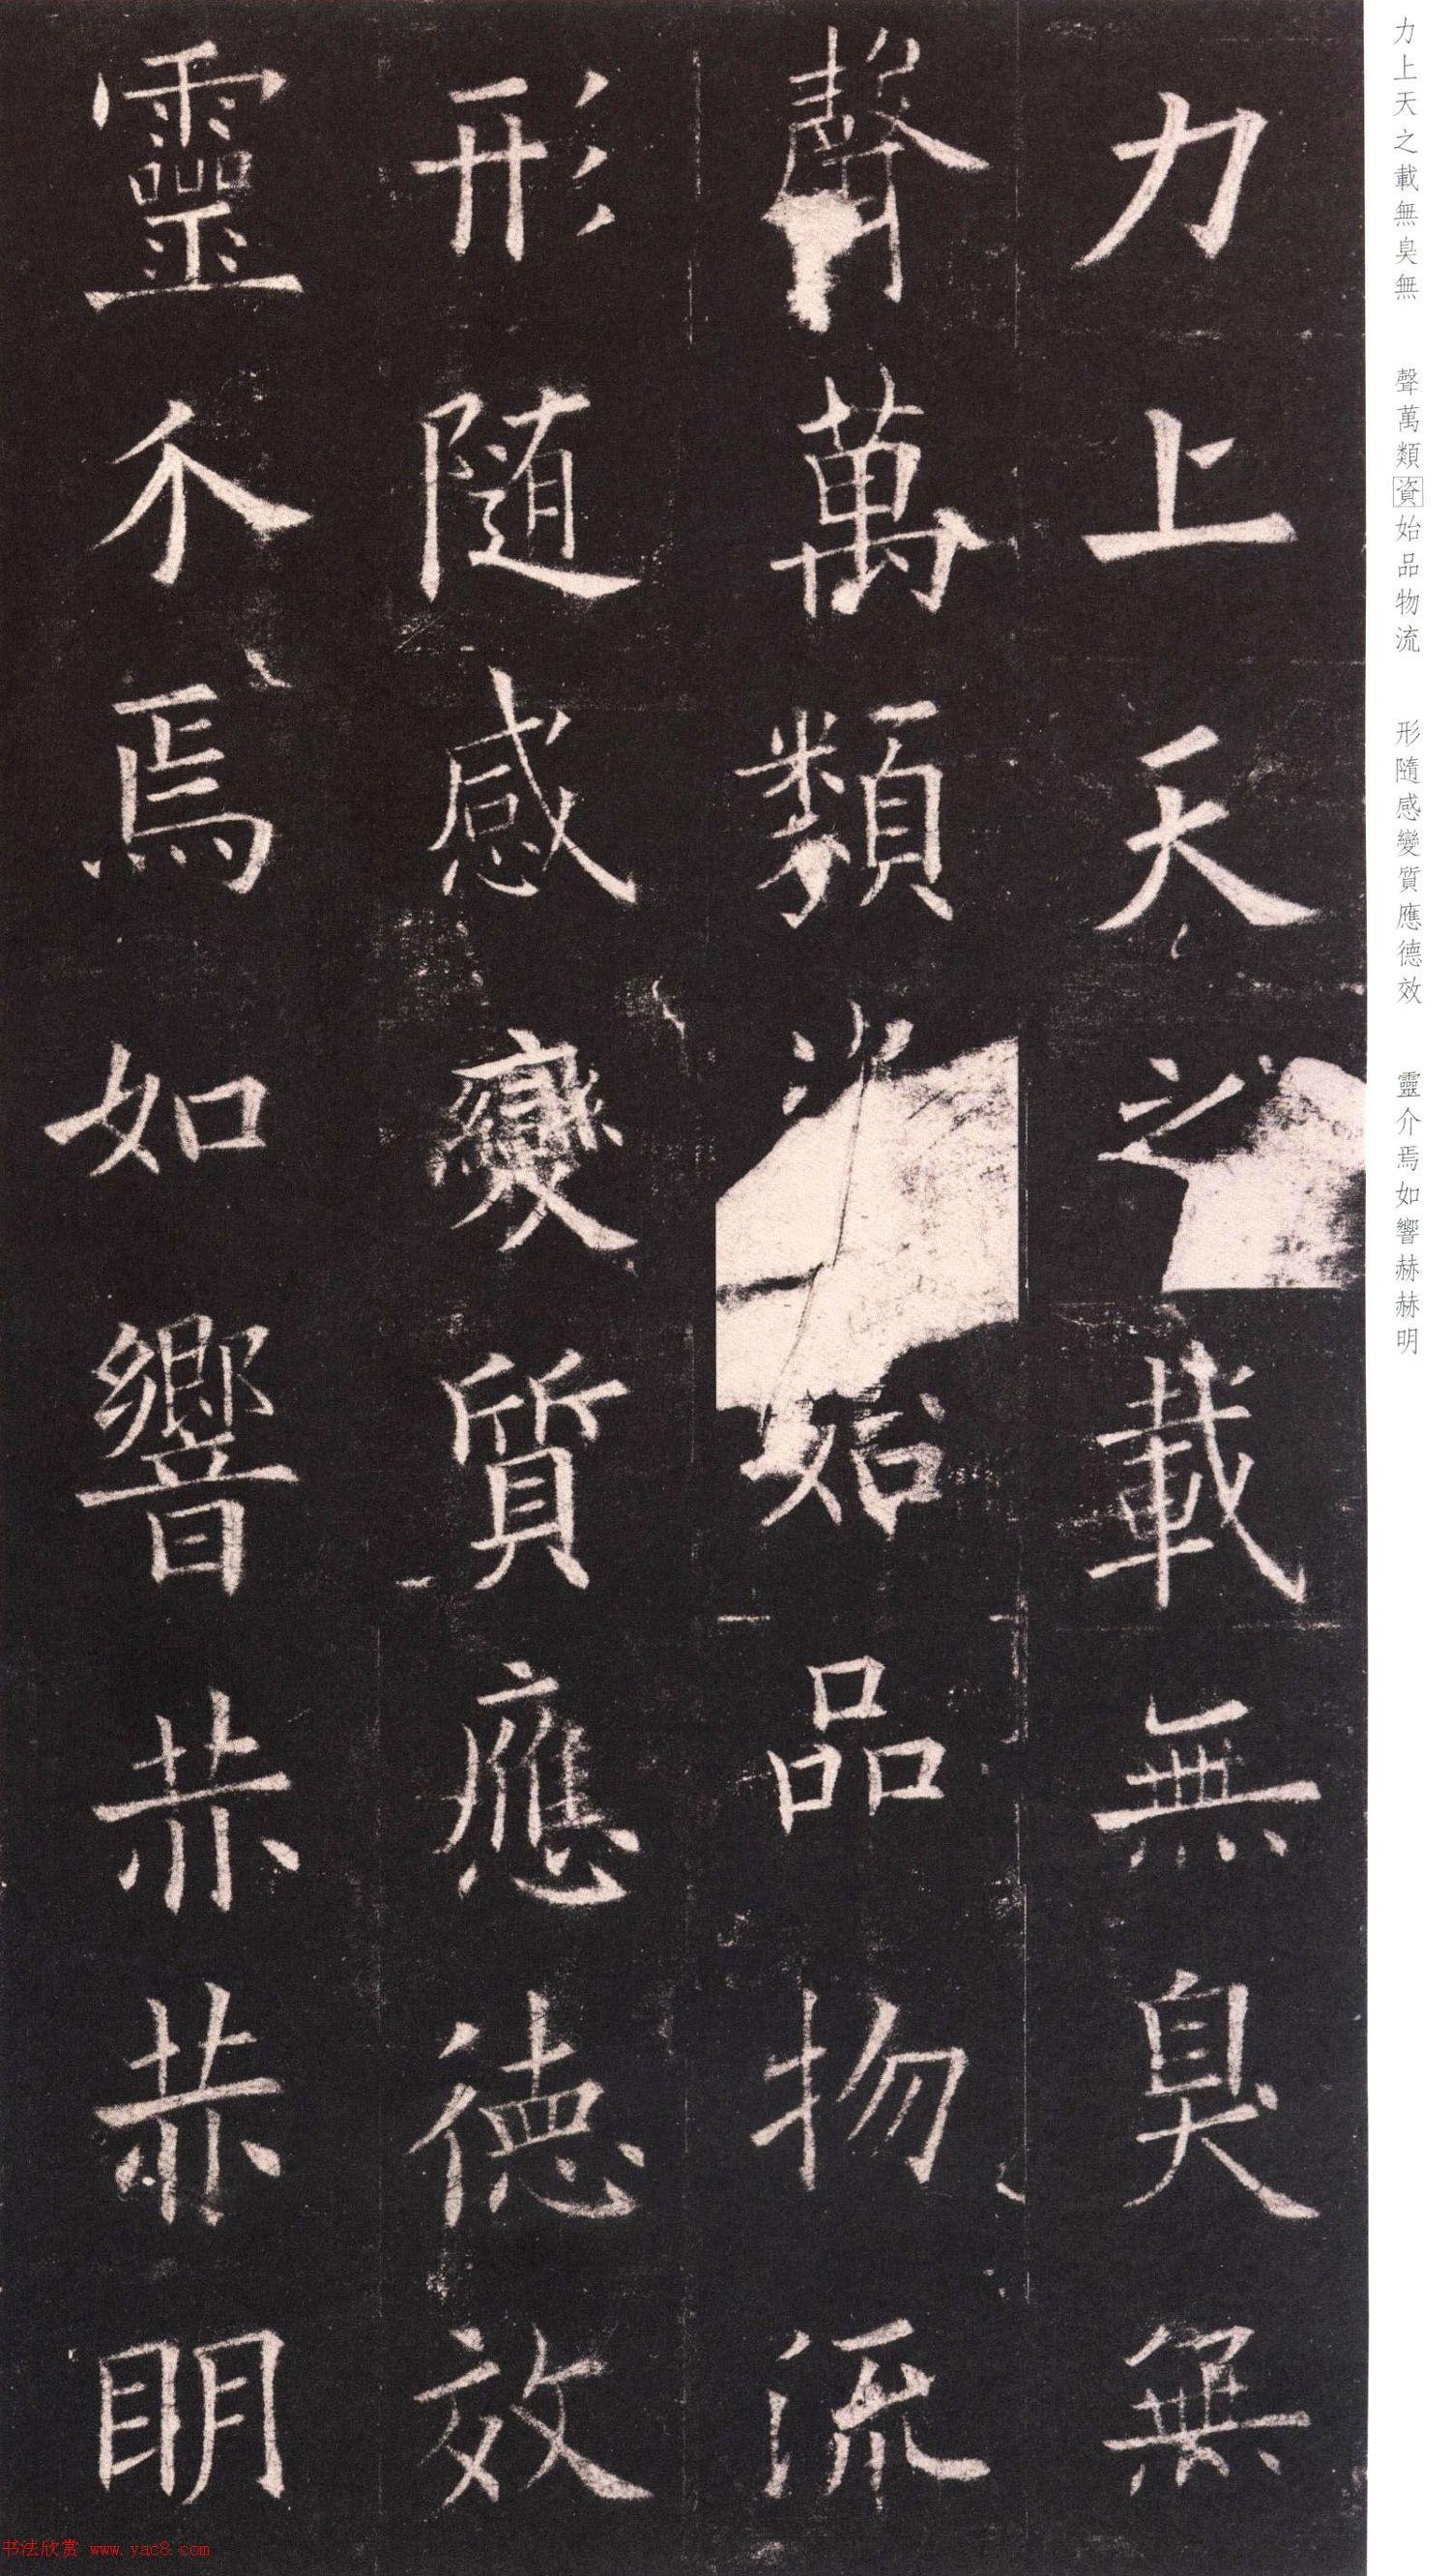 力上天之載無臭無
聲萬類始品物流
形隨感變質應德效
靈介焉如響赫赫明
力上天之載無臭無 聲萬類資始品物流 形隨感變質應德效 靈介焉如響赫赫明
书法欣赏 www.yac8.com